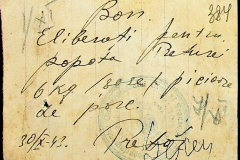 Bon.
384
Eliberați pentru
popota Preturei
6 kg /șase/ picioare
de porc.
30/X-42. Pretor,